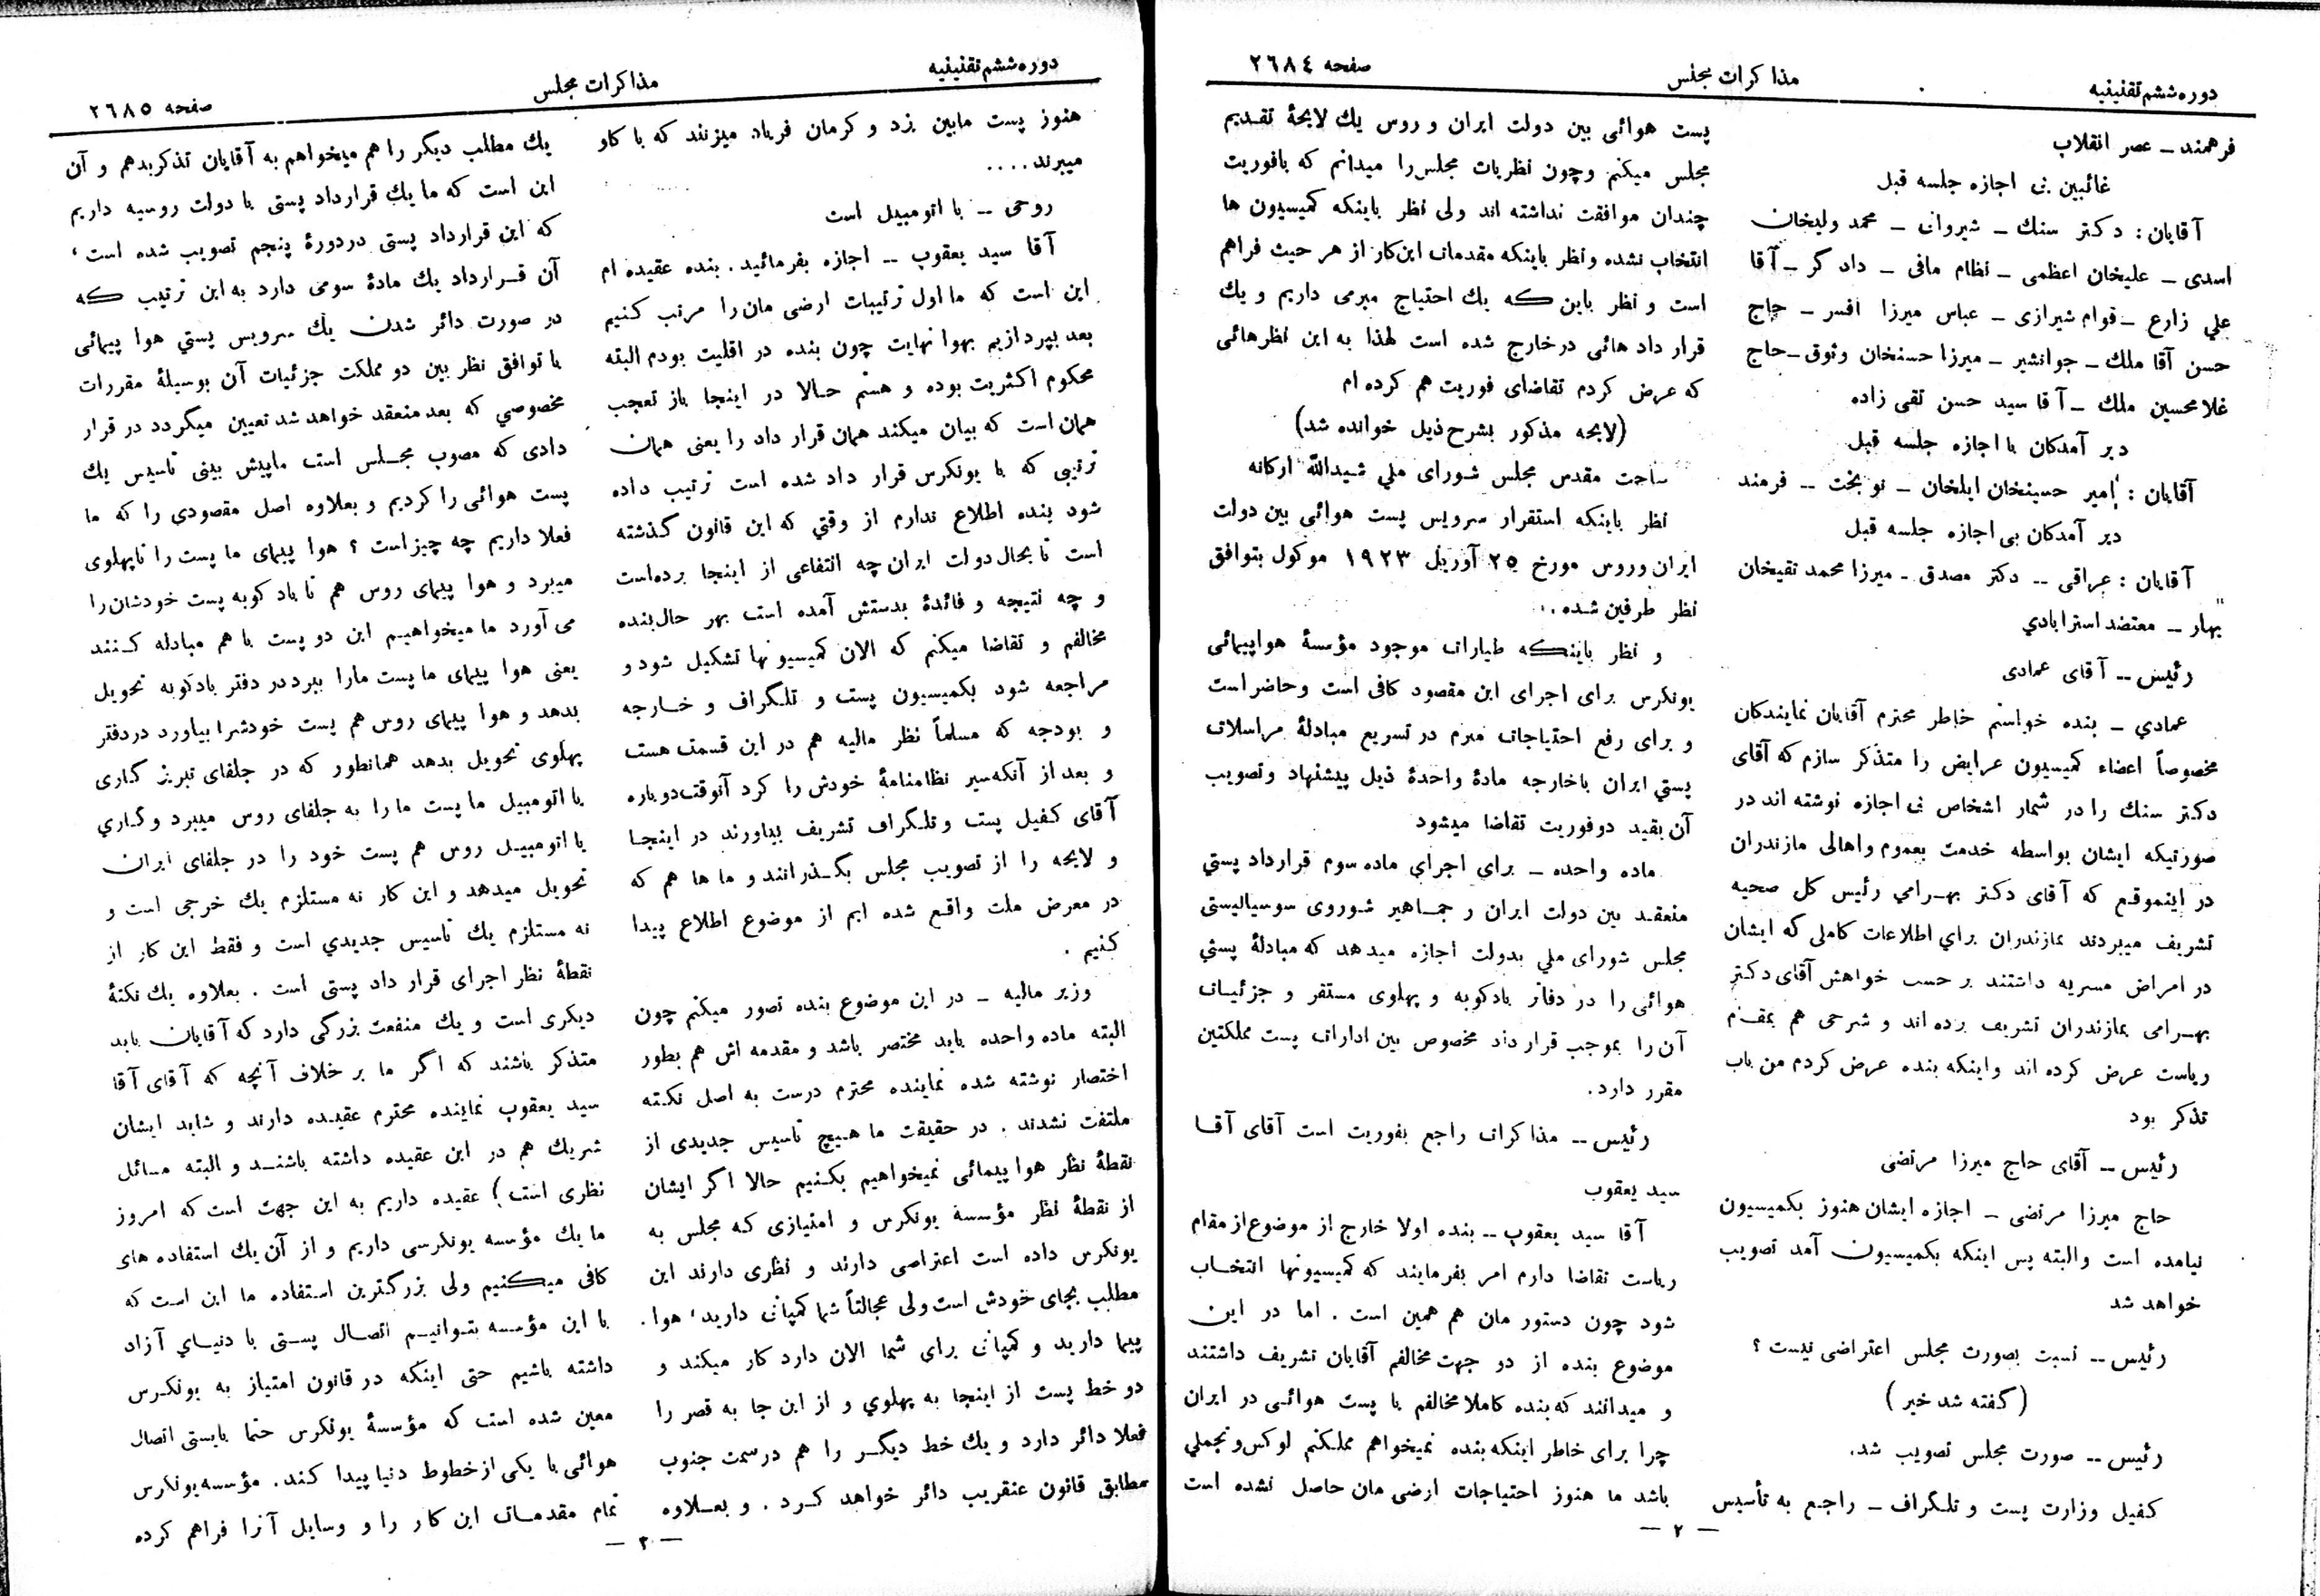 دوره ششم تقنینیه
مذاکرات مجلس
صفحه ۲٦٨٤
فرهمند ــ عصر انقلاب
غائبین بی اجازه جلسه قبل
آقایان : دکتر سنك ــ شیروانی ــ محمد ولیخان
اسدی ــ علیخان اعظمی ــ نظام مافی ــ دادگر ــ آقا
علي زارع ــ قوام شیرازی ــ عباس میرزا افسر ــ حاج
حسن آقا ملك ــ جوانشیر ــ میرزا حسنخان وثوق ــ حاج
غلامحسین ملك ــ آقا سید حسن تقی زاده
دیر آمدگان با اجازه جلسه قبل
آقایان : امیر حسینخان ایلخان ــ نوبخت ــ فرمند
دیر آمدگان بی اجازه جلسه قبل
آقایان : عراقی ــ دکتر مصدق ــ میرزا محمد تقیخان
بهار ــ معتضد استرابادي
رئیس ــ آقای عمادی
عمادي ــ بنده خواستم خاطر محترم آقایان نمایندکان
مخصوصاً اعضاء کمیسیون عرایض را متذکر سازم که آقای
دکتر سنك را در شمار اشخاص بی اجازه نوشته اند در
صورتیکه ایشان بواسطه خدمت بعموم واهالی مازندران
در اینموقع که آقای دکتر بهرامي رئیس کل صحیه
تشریف میبردند بمازندران براي اطلاعات کاملی که ایشان
در امراض مسریه داشتند بر حسب خواهش آقای دکتر
بهرامی بمازندران تشریف برده اند و شرحی هم بمقام
ریاست عرض کرده اند واینکه بنده عرض کردم من باب
تذکر بود
رئیس ــ آقای حاج میرزا مرتضی
حاج میرزا مرتضی ــ اجازه ایشان هنوز بکمیسیون
نیامده است والبته پس اینکه بکمیسیون آمد تصویب
خواهد شد
رئیس ــ نسبت بصورت مجلس اعتراضی نیست ؟
( گفته شد خیر )
رئیس ــ صورت مجلس تصویب شد.
کفیل وزارت پست و تلگراف ــ راجع به تأسیس
پست هوائی بین دولت ایران و روس یك لایحهٔ تقدیم
مجلس میکنم وچون نظریات مجلس را میدانم که بافوریت
چندان موافقت نداشته اند ولی نظر باینکه کمیسیون ها
انتخاب نشده ونظر باینکه مقدمات این کار از هر حیث فراهم
است و نظر باین که یك احتیاج مبرمی داریم و یك
قرار داد هائی در خارج شده است لهذا به این نظر هائی
که عرض کردم تقاضای فوریت هم کرده ام
(لایحه مذکور بشرح ذیل خوانده شد)
ساحت مقدس مجلس شورای ملي شیدالله ارکانه
نظر باینکه استقرار سرویس پست هوائی بین دولت
ایران وروس مورخ ٢٥ آوریل ۱۹۲۳ موکول بتوافق
نظر طرفین شده .
و نظر باینکه طیارات موجود مؤسسهٔ هواپیمائی
یونکرس برای اجرای این مقصود کافی است وحاضر است
و برای رفع احتیاجات مبرم در تسریع مبادلهٔ مراسلات
پستي ایران باخارجه مادهٔ واحدهٔ ذیل پیشنهاد وتصویب
آن بقید دو فوریت تقاضا میشود
ماده واحده ــ براي اجراي ماده سوم قرارداد پستي
منعقد بین دولت ایران و جماهیر شوروی سوسیالیستی
مجلس شورای ملي بدولت اجازه میدهد که مبادلهٔ پستي
هوائی را در دفاتر بادکوبه و پهلوی مستقر و جزئیات
آن را بموجب قرار داد مخصوص بین ادارات پست مملکتین
مقرر دارد.
رئیس ــ مذاکرات راجع بفوریت است آقای آقا
سید یعقوب
آقا سید یعقوب ــ بنده اولا خارج از موضوع از مقام
ریاست تقاضا دارم امر بفرمایند که کمیسیونها انتخاب
شود چون دستور مان هم همین است . اما در این
موضوع بنده از دو جهت مخالفم آقایان تشریف داشتند
و میدانند که بنده کاملا مخالفم با پست هوائی در ایران
چرا برای خاطر اینکه بنده نمیخواهم مملکتم لوکس وتجملي
باشد ما هنوز احتیاجات ارضی مان حاصل نشده است
— ۲ —
دوره ششم تقنینیه
مذاکرات مجلس
صفحه ۲٦٨٥
هنوز پست مابین یزد و کرمان فریاد میزنند که با گاو
میبرند ....
روحی ــ با اتومبیل است
آقا سید یعقوب ــ اجازه بفرمائید . بنده عقیده ام
این است که ما اول ترتیبات ارضی مان را مرتب کنیم
بعد بپردازیم بهوا نهایت چون بنده در اقلیت بودم البته
محکوم اکثریت بوده و هستم حالا در اینجا باز تعجب
همان است که بیان میکند همان قرار داد را یعنی همان
ترتیبی که با یونکرس قرار داد شده است ترتیب داده
شود بنده اطلاع ندارم از وقتي که این قانون گذشته
است تا بحال دولت ایران چه انتفاعی از اینجا برده است
و چه نتیجه و فائدهٔ بدستش آمده است بهر حال بنده
مخالفم و تقاضا میکنم که الان کمیسیونها تشکیل شود و
مراجعه شود بکمیسیون پست و تلگراف و خارجه
و بودجه که مسلماً نظر مالیه هم در این قسمت هست
و بعد از آنکه سیر نظامنامهٔ خودش را کرد آنوقت دوباره
آقای کفیل پست وتلگراف تشریف بیاورند در اینجا
و لایحه را از تصویب مجلس بگذرانند و ما ها هم که
در معرض ملت واقع شده ایم از موضوع اطلاع پیدا
کنیم .
وزیر مالیه ــ در این موضوع بنده تصور میکنم چون
البته ماده واحده باید مختصر باشد و مقدمه اش هم بطور
اختصار نوشته شده نماینده محترم درست به اصل نکته
ملتفت نشدند . در حقیقت ما هیچ تأسیس جدیدی از
نقطهٔ نظر هوا پیمائی نمیخواهیم بکنیم حالا اگر ایشان
از نقطهٔ نظر مؤسسهٔ یونکرس و امتیازی که مجلس به
یونکرس داده است اعتراضی دارند و نظری دارند این
مطلب بجای خودش است ولی عجالتاً شما کمپانی دارید، هوا
پیما دارید و کمپانی براي شما الان دارد کار میکند و
دو خط پست از اینجا به پهلوي و از این جا به قصر را
فعلا دائر دارد و یك خط دیگر را هم در سمت جنوب
مطابق قانون عنقریب دائر خواهد کرد . و بعلاوه
یك مطلب دیگر را هم میخواهم به آقایان تذکر بدهم و آن
این است که ما یك قرارداد پستی با دولت روسیه داریم
که این قرارداد پستی در دورهٔ پنجم تصویب شده است ،
آن قرارداد یك مادهٔ سومی دارد به این ترتیب که
در صورت دائر شدن یك سرویس پستي هوا پیمائی
با توافق نظر بین دو مملکت جزئیات آن بوسیلهٔ مقررات
مخصوصي که بعد منعقد خواهد شد تعیین میگردد در قرار
دادی که مصوب مجلس است ماپیش بینی تأسیس یك
پست هوائی را کردیم و بعلاوه اصل مقصودي را که ما
فعلا داریم چه چیز است ؟ هوا پیمای ما پست را تاپهلوی
میبرد و هوا پیمای روس هم تا بادکوبه پست خودشان را
می آورد ما میخواهیم این دو پست با هم مبادله کنند
یعنی هوا پیمای ما پست مارا ببرد در دفتر بادکوبه تحویل
بدهد و هوا پیمای روس هم پست خودشرا بیاورد در دفتر
پهلوی تحویل بدهد همانطور که در جلفای تبریز گاری
با اتومبیل ما پست ما را به جلفای روس میبرد و گاري
با اتومبیل روس هم پست خود را در جلفای ایران
تحویل میدهد و این کار نه مستلزم یك خرجی است و
نه مستلزم یك تأسیس جدیدي است و فقط این کار از
نقطهٔ نظر اجرای قرار داد پستی است . بعلاوه یك نکتهٔ
دیگری است و یك منفعت بزرگی دارد که آقایان باید
متذکر باشند که اگر ما بر خلاف آنچه که آقای آقا
سید یعقوب نماینده محترم عقیده دارند و شاید ایشان
شریك هم در این عقیده داشته باشند و البته مسائل
نظری است) عقیده داریم به این جهت است که امروز
ما یك مؤسسه یونکرسی داریم و از آن یك استفاده های
کافی میکنیم ولی بزرگترین استفاده ما این است که
با این مؤسسه بتوانیم اتصال پستی با دنیاي آزاد
داشته باشیم حتی اینکه در قانون امتیاز به یونکرس
معین شده است که مؤسسهٔ یونکرس حتما بایستی اتصال
هوائی با یکی از خطوط دنیا پیدا کند . مؤسسه یونکرس
تمام مقدمات این کار را و وسایل آنرا فراهم کرده
— ۳ —